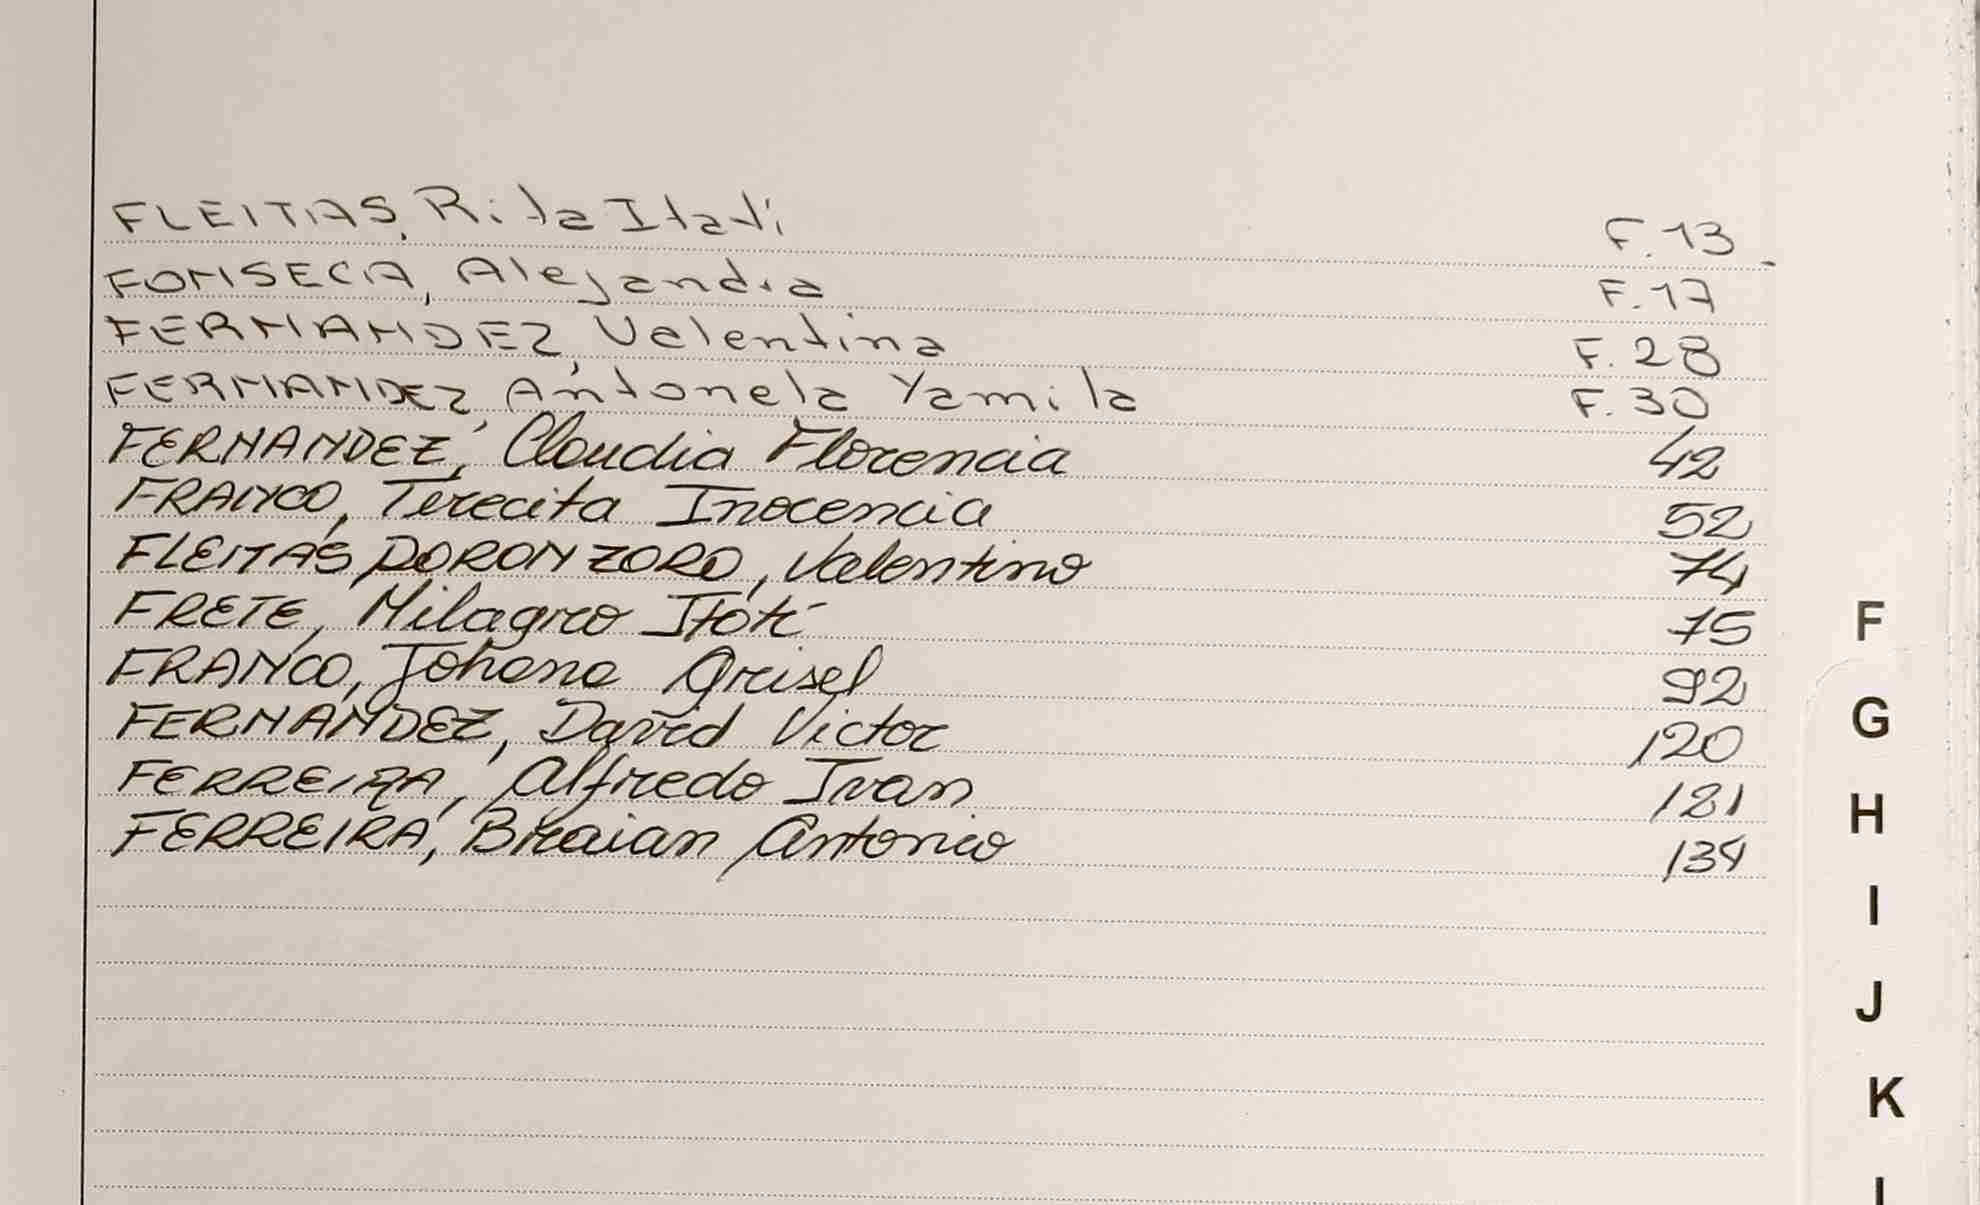 FLEITAS, Rita Itatí F.13
FONSECA, Alejandra F.17
FERNANDEZ, Valentina F.28
FERNANDEZ, Antonela Yamila F.30
FERNANDEZ, Claudia Florencia 42
FRANCO, Terecita Inocencia 52
FLEITAS DORONZORO, Valentino 74
FRETE, Milagro Itatí 75
FRANCO, Johana Grisel 92
FERNANDEZ, David Victor 120
FERREIRA, Alfredo Ivan 121
FERREIRA, Braian Antonio 134
F
G
H
I
J
K